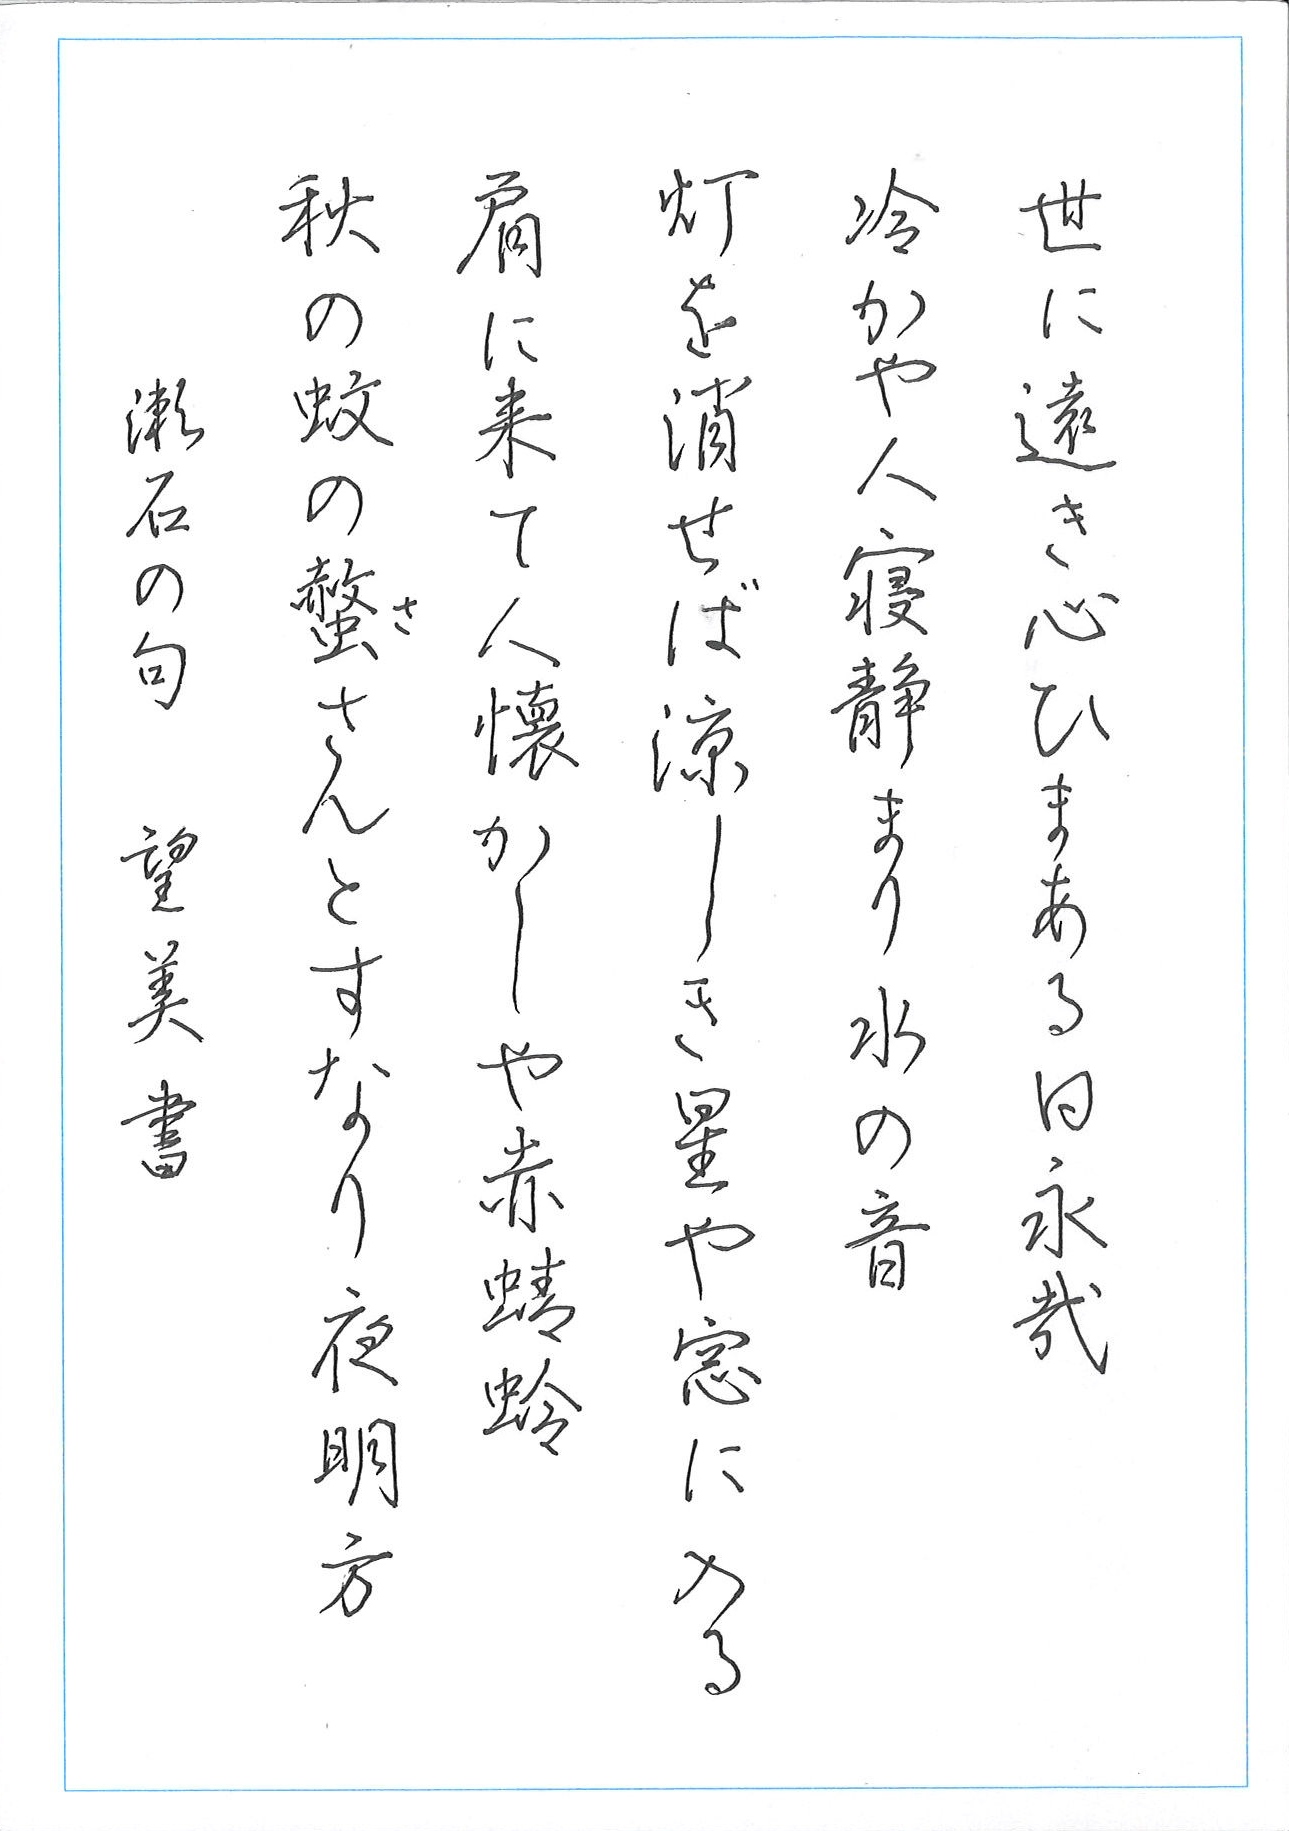 世に遠き心ひまある日永哉
冷かや人寝静まり水の音
灯を消せば涼しき星や窓に入る
肩に来て人懐かしや赤蜻蛉
秋の蚊の螫さんとすなり夜明方
さ
漱石の句 望美書